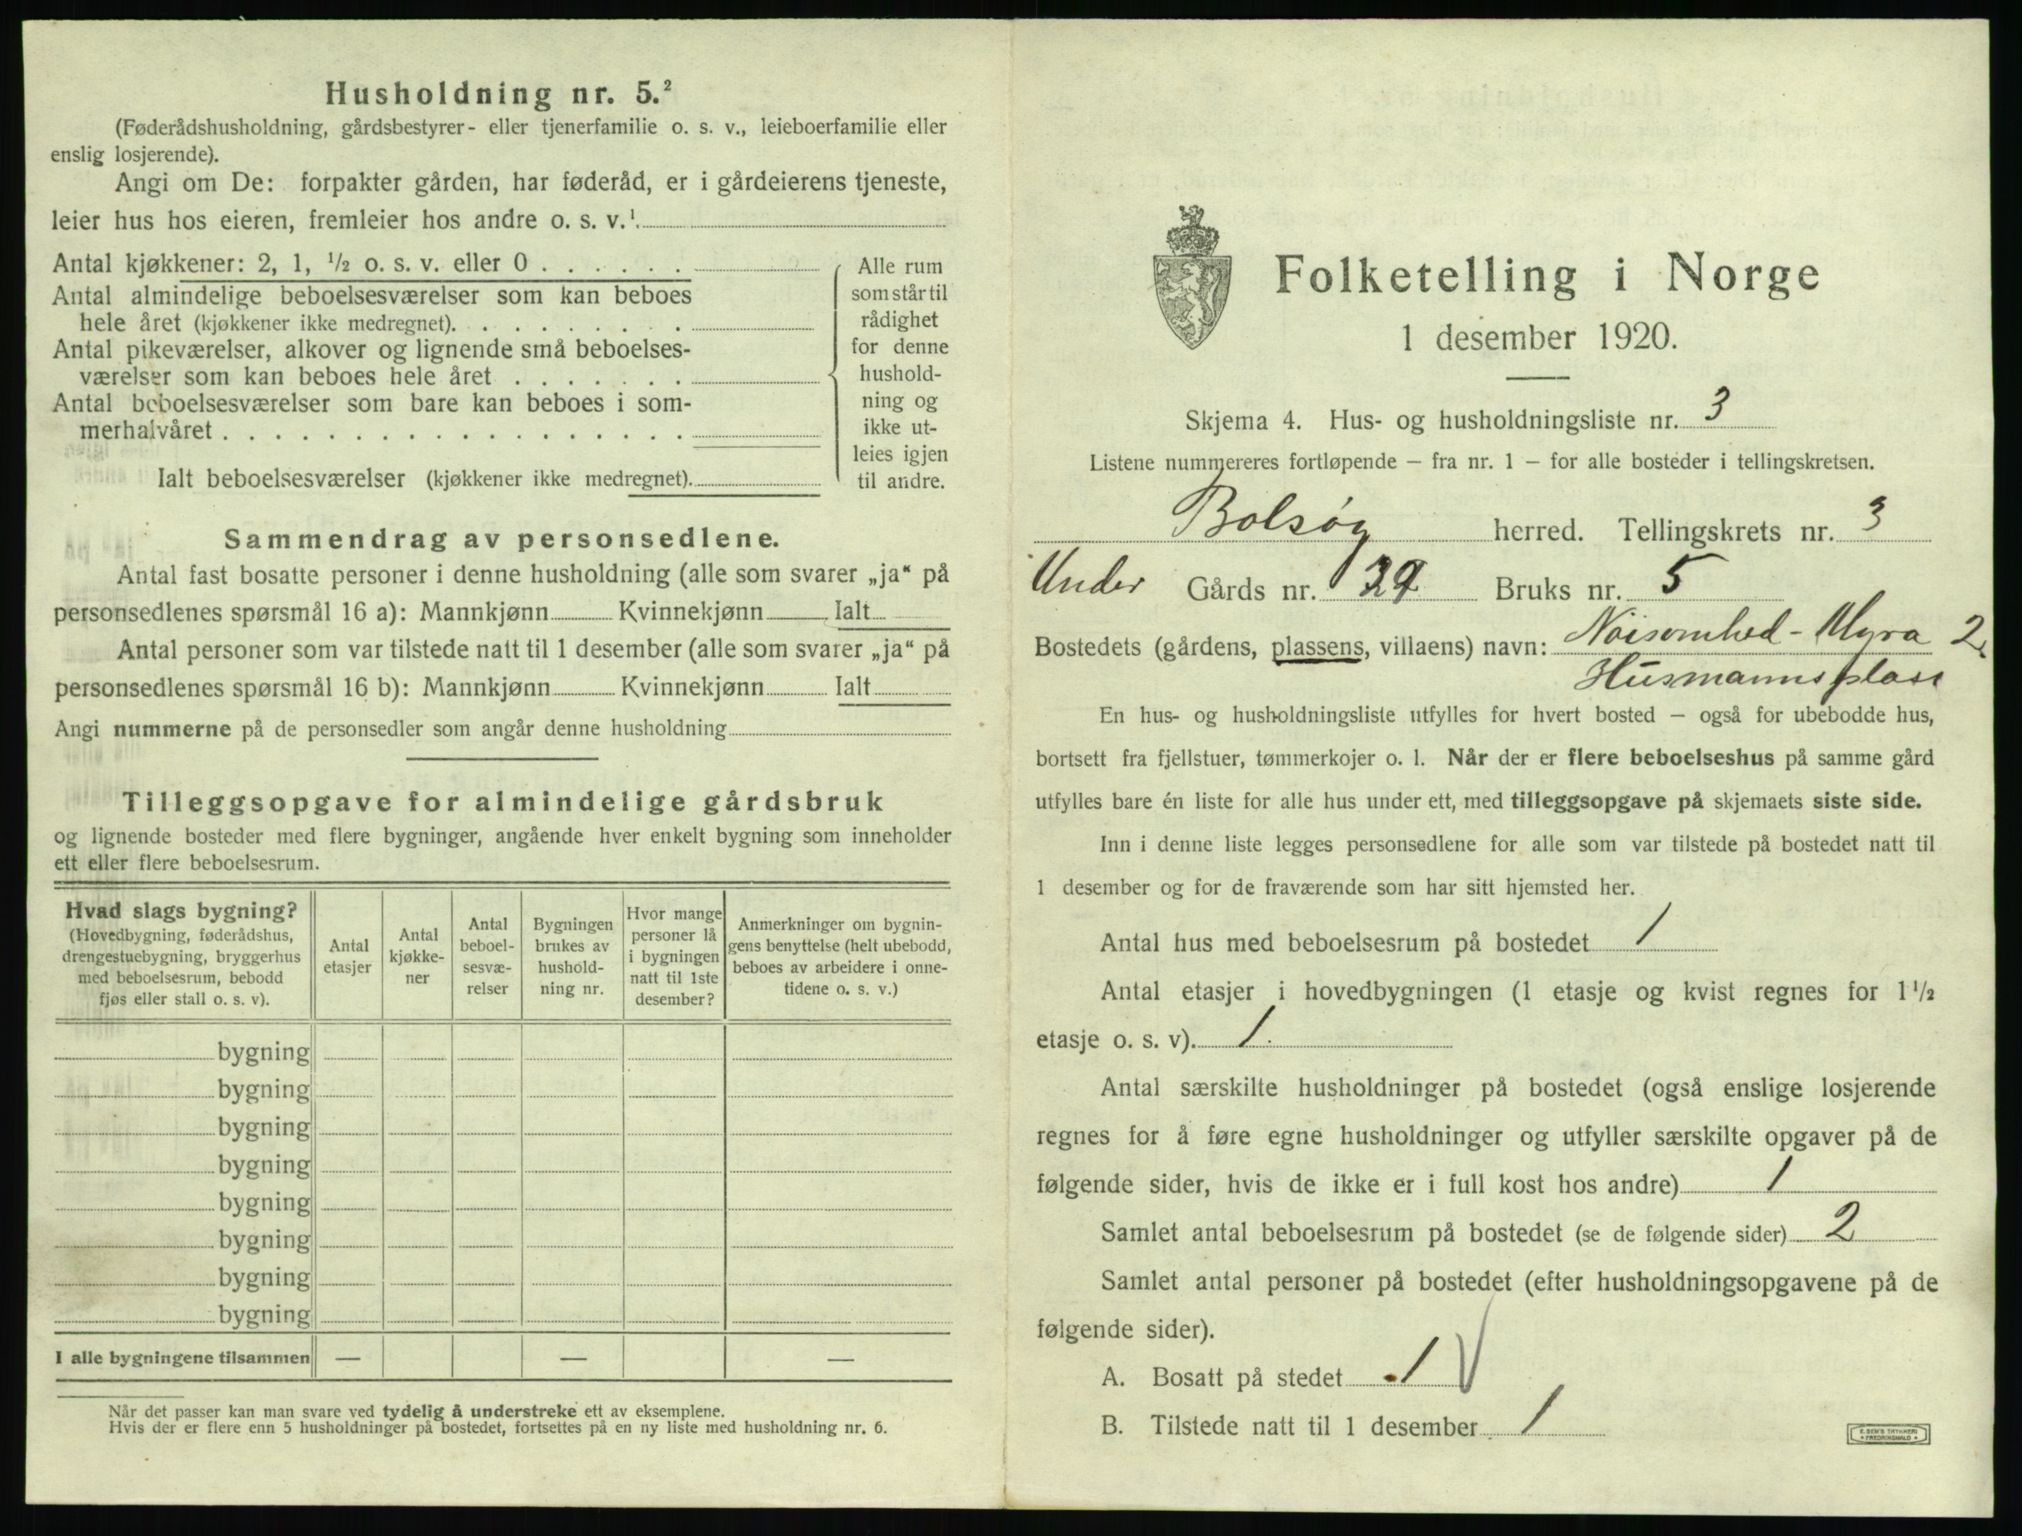 Husholdning nr. 5.²
(Føderådshusholdning, gårdsbestyrer- eller tjenerfamilie o. s. v., leieboerfamilie eller
enslig losjerende).
Angi om De: forpakter gården, har føderåd, er i gårdeierens tjeneste,
leier hus hos eieren, fremleier hos andre o. s. v.¹
Antal kjøkkener: 2, 1, ½ o. s. v. eller 0
Antal almindelige beboelsesværelser som kan beboes
hele året (kjøkkener ikke medregnet).
Antal pikeværelser, alkover og lignende små beboelses-
værelser som kan beboes hele året
Antal beboelsesværelser som bare kan beboes i som-
merhalvåret
Ialt beboelsesværelser (kjøkkener ikke medregnet).
Alle rum
som står til
rådighet
for denne
hushold-
ning og
ikke ut-
leies igjen
til andre.
Sammendrag av personsedlene.
Antal fast bosatte personer i denne husholdning (alle som svarer „ja“ på
personsedlenes spørsmål 16 a): Mannkjønn Kvinnekjønn Ialt
Antal personer som var tilstede natt til 1 desember (alle som svarer „ja“ på
personsedlenes spørsmål 16 b): Mannkjønn Kvinnekjønn Ialt
Angi nummerne på de personsedler som angår denne husholdning
Tilleggsopgave for almindelige gårdsbruk
og lignende bosteder med flere bygninger, angående hver enkelt bygning som inneholder
ett eller flere beboelsesrum.
Hvad slags bygning?
(Hovedbygning, føderådshus,
drengestuebygning, bryggerhus
med beboelsesrum, bebodd
fjøs eller stall o. s. v).
Antal
etasjer
Antal
kjøkke-
ner
Antal
beboel-
sesvæ-
relser
Bygningen
brukes av
hushold-
ning nr.
Hvor mange
personer lå
i bygningen
natt til 1ste
desember?
Anmerkninger om bygnin-
gens benyttelse (helt ubebodd,
beboes av arbeidere i onne-
tidene o. s. v.)
bygning
bygning
bygning
bygning
bygning
bygning
bygning
bygning
I alle bygningene tilsammen — — —
Når det passer kan man svare ved tydelig å understreke ett av eksemplene.
Hvis der er flere enn 5 husholdninger på bostedet, fortsettes på en ny liste med husholdning nr. 6.
Folketelling i Norge
1 desember 1920.
Skjema 4. Hus- og husholdningsliste nr. 3
Listene nummereres fortløpende – fra nr. 1 – for alle bosteder i tellingskretsen.
Bolsøy herred. Tellingskrets nr. 3
Under Gårds nr. 29 Bruks nr. 5
Bostedets (gårdens, plassens, villaens) navn: Nøisomhed - Myra 2
Husmannsplass
En hus- og husholdningsliste utfylles for hvert bosted – også for ubebodde hus,
bortsett fra fjellstuer, tømmerkojer o. l. Når der er flere beboelseshus på samme gård
utfylles bare én liste for alle hus under ett, med tilleggsopgave på skjemaets siste side.
Inn i denne liste legges personsedlene for alle som var tilstede på bostedet natt til
1 desember og for de fraværende som har sitt hjemsted her.
Antal hus med beboelsesrum på bostedet 1
Antal etasjer i hovedbygningen (1 etasje og kvist regnes for 1½
etasje o. s. v). 1.
Antal særskilte husholdninger på bostedet (også enslige losjerende
regnes for å føre egne husholdninger og utfyller særskilte opgaver på de
følgende sider, hvis de ikke er i full kost hos andre) 1
Samlet antal beboelsesrum på bostedet (se de følgende sider) 2
Samlet antal personer på bostedet (efter husholdningsopgavene på de
følgende sider).
A. Bosatt på stedet 1 V
B. Tilstede natt til 1 desember 1
E. SEM'S TRYKKERI
FREDRIKSHALD